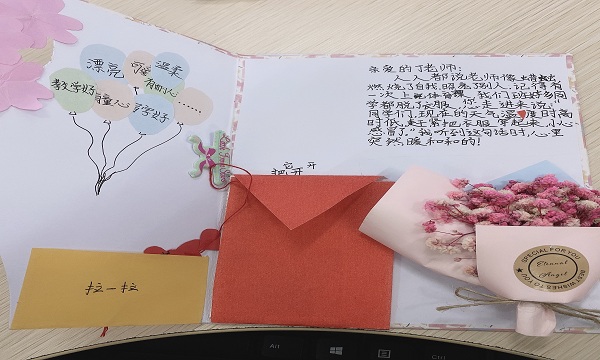 漂亮
可爱
温柔
教学好
有耐心
有童心
字好
……
拉一拉
亲爱的丁老师:
人人都说老师像蜡烛
燃烧了自我,照亮了别人。记得有
一次上 课,我们班好多同
学都脱了衣服,你走进来说:"
同学们,现在的天气温度时高
时低,赶紧把衣服穿起来,小心
感冒了"我听到这句话时,心里
突然暖和和的!
把它开
SPECIAL FOR YOU
Eternal
Angel
BEST WISHES TO YOU
Alt
Ctrl